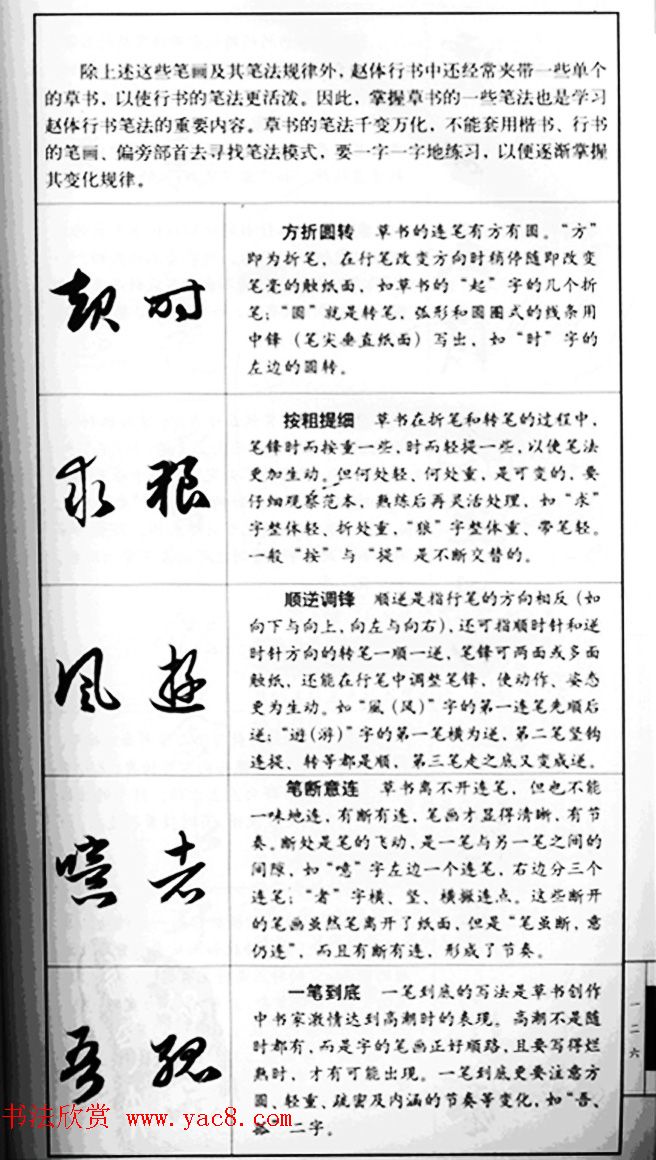 除上述这些笔画及其笔法规律外，赵体行书中还经常夹带一些单个
的草书，以使行书的笔法更活泼。因此，掌握草书的一些笔法也是学习
赵体行书笔法的重要内容。草书的笔法千变万化，不能套用楷书、行书
的笔画、偏旁部首去寻找笔法模式，要一字一字地练习，以便逐渐掌握
其变化规律。
起 时
方折圆转 草书的连笔有方有圆。“方”
即为折笔，在行笔改变方向时稍停随即改变
笔毫的触纸面，如草书的“起”字的几个折
笔；“圆”就是转笔，弧形和圆圈式的线条用
中锋（笔尖垂直纸面）写出，如“时”字的
左边的圆转。
求 狠
按粗提细 草书在折笔和转笔的过程中，
笔锋时而按重一些，时而轻提一些，以使笔法
更加生动。但何处轻、何处重，是可变的，要
仔细观察范本，熟练后再灵活处理，如“求”
字整体轻、折处重，“狠”字整体重、带笔轻。
一般“按”与“提”是不断交替的。
風 遊
顺逆调锋 顺逆是指行笔的方向相反（如
向下与向上，向左与向右），还可指顺时针和逆
时针方向的转笔一顺一逆，笔锋可两面或多面
触纸，还能在行笔中调整笔锋，使动作、姿态
更为生动。如“風（风）”字的第一连笔先顺后
逆；“遊（游）”字的第一笔横为逆、第二笔竖钩
连提、转等都是顺，第三笔走之底又变成逆。
噫 者
笔断意连 草书离不开连笔，但也不能
一味地连，有断有连，笔画才显得清晰，有节
奏。断处是笔的飞动，是一笔与另一笔之间的
间隙，如“噫”字左边一个连笔，右边分三个
连笔；“者”字横、竖、横撇连点。这些断开
的笔画虽然笔离开了纸面，但是“笔虽断，意
仍连”，而且有断有连，形成了节奏。
吾
一笔到底 一笔到底的写法是草书创作
中书家激情达到高潮时的表现。高潮不是随
时都有，而是字的笔画正好顺路，且要写得烂
熟时，才有可能出现。一笔到底更要注意方
圆、轻重、疏密及内涵的节奏等变化，如“吾、
”二字。
一二六
书法欣赏 www.yac8.com